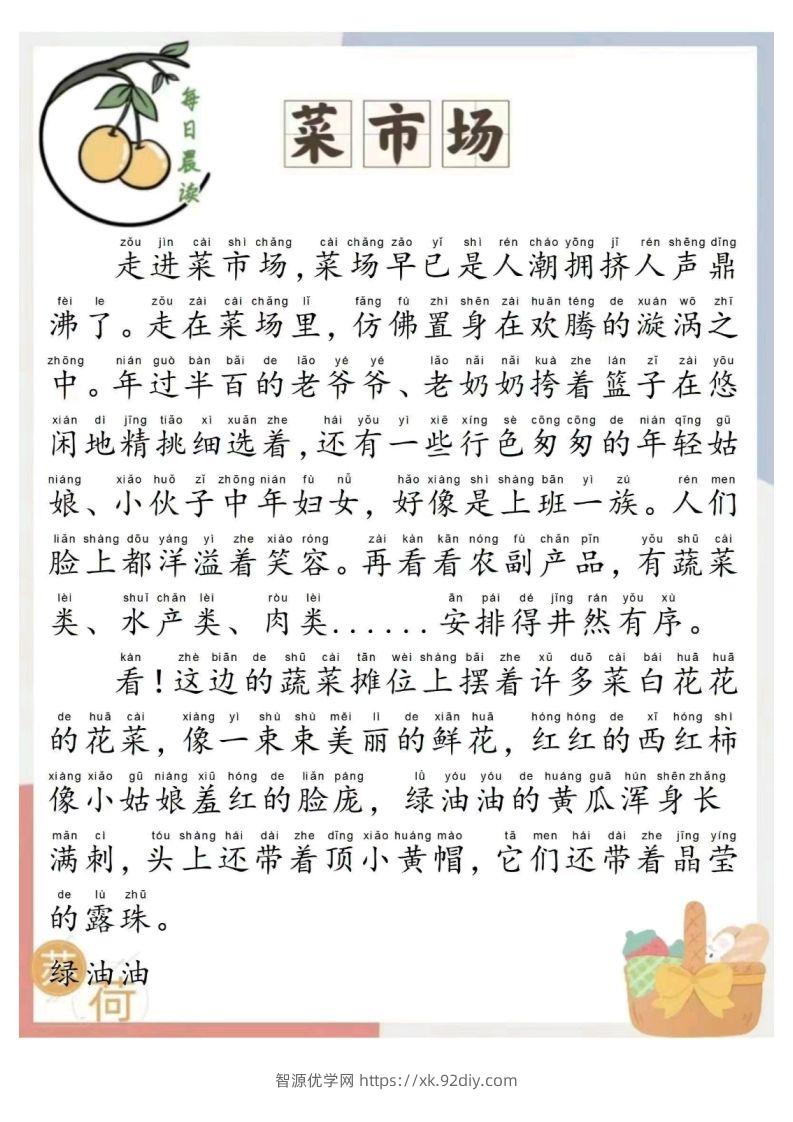 每日晨读
菜市场
zǒu jìn cài shì chǎng cài chǎng zǎo yǐ shì rén cháo yōng jǐ rén shēng dǐng
走进菜市场,菜场早已是人潮拥挤人声鼎
fèi le zǒu zài cài chǎng lǐ fǎng fú zhì shēn zài huān téng de xuán wō zhī
沸了。走在菜场里,仿佛置身在欢腾的漩涡之
zhōng nián guò bàn bǎi de lǎo yé yé lǎo nǎi nǎi kuà zhe lán zǐ zài yōu
中。年过半百的老爷爷、老奶奶挎着篮子在悠
xián dì jīng tiāo xì xuǎn zhe hái yǒu yì xiē xíng sè cōng cōng de nián qīng gū
闲地精挑细选着,还有一些行色匆匆的年轻姑
niáng xiǎo huǒ zǐ zhōng nián fù nǚ hǎo xiàng shì shàng bān yì zú rén men
娘、小伙子中年妇女,好像是上班一族。人们
liǎn shàng dōu yáng yì zhe xiào róng zài kàn kān nóng fù chǎn pǐn yǒu shū cài
脸上都洋溢着笑容。再看看农副产品,有蔬菜
lèi shuǐ chǎn lèi ròu lèi ān pái dé jǐng rán yǒu xù
类、水产类、肉类......安排得井然有序。
kàn zhè biān de shū cài tān wèi shàng bǎi zhe xǔ duō cài bái huā huā
看!这边的蔬菜摊位上摆着许多菜白花花
de huā cài xiàng yì shù shù měi lì de xiān huā hóng hóng de xī hóng shì
的花菜,像一束束美丽的鲜花,红红的西红柿
xiàng xiǎo gū niáng xiū hóng de liǎn páng lǜ yóu yóu de huáng guā hún shēn zhǎng
像小姑娘羞红的脸庞,绿油油的黄瓜浑身长
mǎn cì tóu shàng hái dài zhe dǐng xiǎo huáng mào tā men hái dài zhe jīng yíng
满刺,头上还带着顶小黄帽,它们还带着晶莹
de lù zhū
的露珠。
绿油油
荷
智源优学网 https://xk.92diy.com